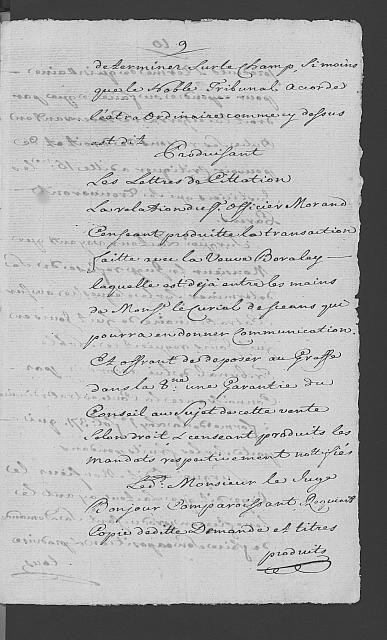 9
determiner sur le Champ, Si moins
que le Noble Tribunal acorde
l'extraordinaire comme cy dessus
est dit
Produisant
Les Lettres de Cittation
La relation du Sr Officier Morand
Censeant produitte la transaction
faitte avec la Veuve Bovalay
laquelle est déja entre les mains
de Monsr. le Curial de ceans qui
pourra en donner Communication.
Et offrant de deposer au Greffe
dans la 8ne une Garantie du
Conseil au Sujet de cette vente
Selon droit Censeant produits les
mandats respectivement nottifiés
Led. Monsieur le Juge
Bonjour Comparoissant Requiert
Copie deditte Demande et titres
produits